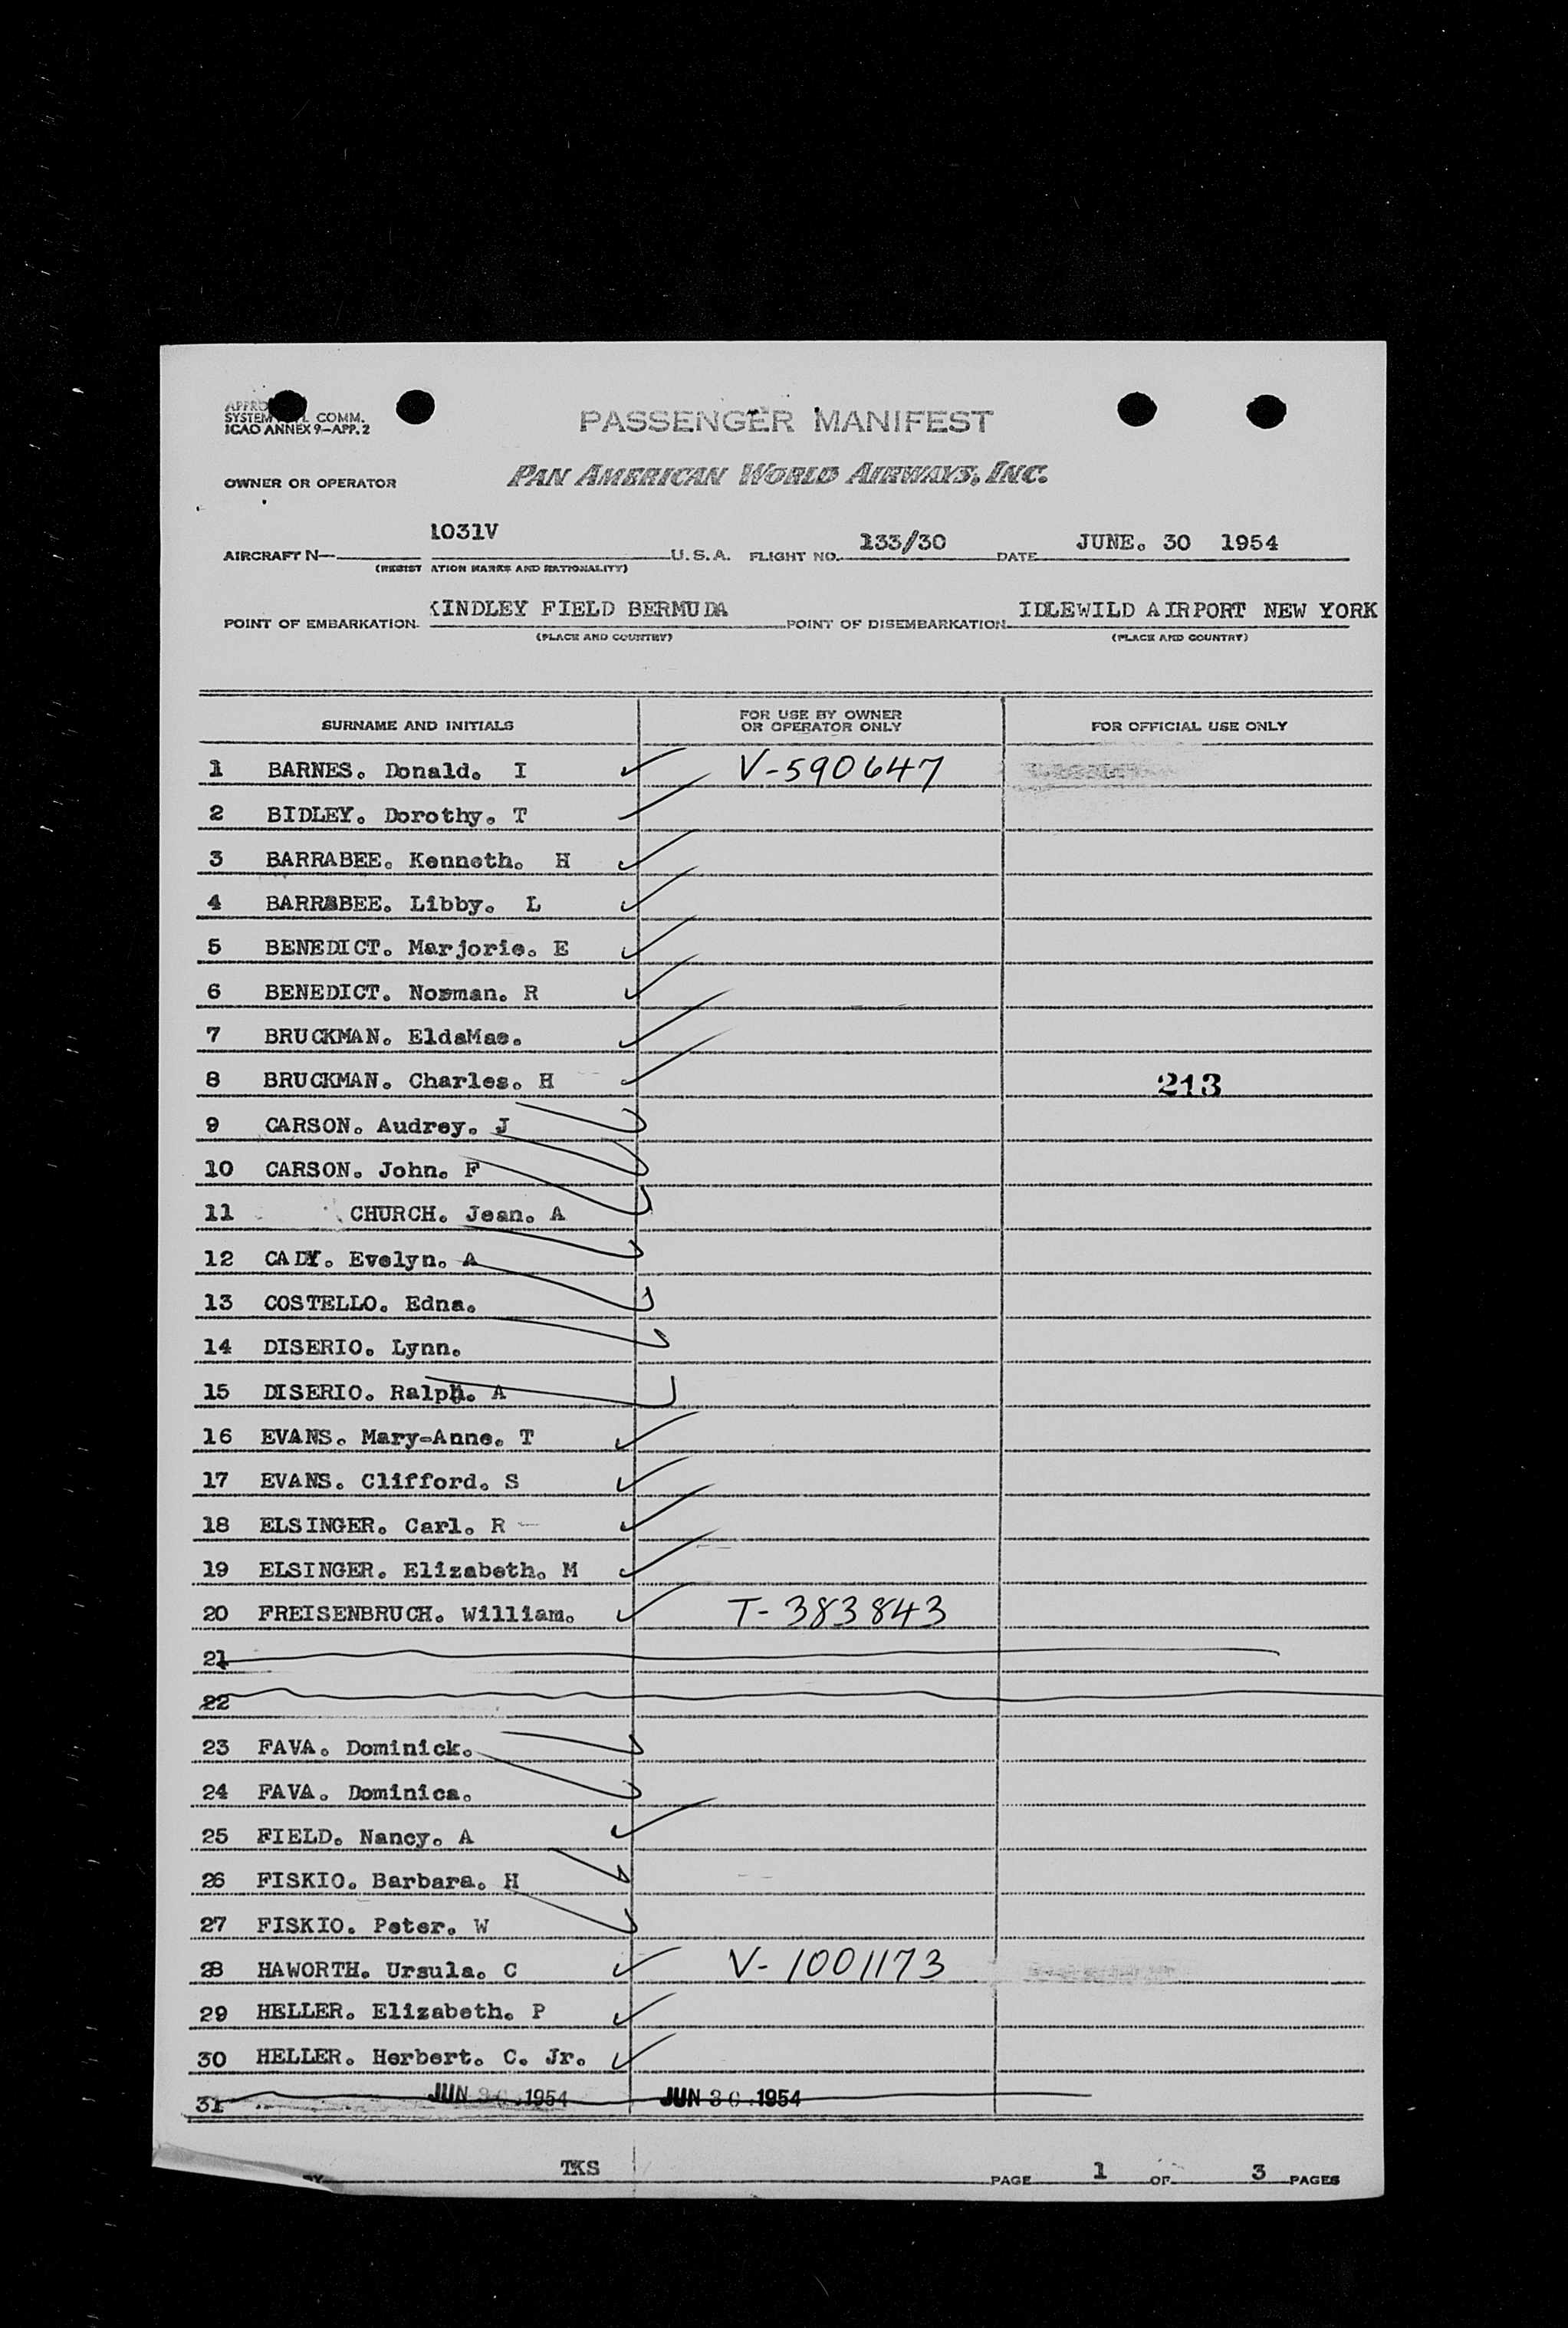 SYSTEM COMM.
ICAO ANNEX 9-APP. 2
PASSENGER MANIFEST
OWNER OR OPERATOR PAN AMERICAN WORLD AIRWAYS, INC.
AIRCRAFT N- 1031V U.S.A. FLIGHT NO. 133/30 DATE JUNE. 30 1954
(REGISTRATION MARKS AND NATIONALITY)
POINT OF EMBARKATION KINDLEY FIELD BERMUDA POINT OF DISEMBARKATION IDLEWILD AIRPORT NEW YORK
(PLACE AND COUNTRY) (PLACE AND COUNTRY)
SURNAME AND INITIALS FOR USE BY OWNER OR OPERATOR ONLY FOR OFFICIAL USE ONLY
1 BARNES. Donald. I V-590647
2 BIDLEY. Dorothy. T
3 BARRABEE. Kenneth. H
4 BARRABEE. Libby. L
5 BENEDICT. Marjorie. E
6 BENEDICT. Norman. R
7 BRUCKMAN. EldaMae.
8 BRUCKMAN. Charles. H 213
9 CARSON. Audrey. J
10 CARSON. John. F
11 CHURCH. Jean. A
12 CADY. Evelyn. A
13 COSTELLO. Edna.
14 DISERIO. Lynn.
15 DISERIO. Ralph. A
16 EVANS. Mary-Anne. T
17 EVANS. Clifford. S
18 ELSINGER. Carl. R
19 ELSINGER. Elizabeth. M
20 FREISENBRUCH. William. T-383843
21
22
23 FAVA. Dominick.
24 FAVA. Dominica.
25 FIELD. Nancy. A
26 FISKIO. Barbara. H
27 FISKIO. Peter. W
28 HAWORTH. Ursula. C V-1001173
29 HELLER. Elizabeth. P
30 HELLER. Herbert. C. Jr.
31 JUN 30 1954 JUN 30 1954
BY TKS PAGE 1 OF 3 PAGES